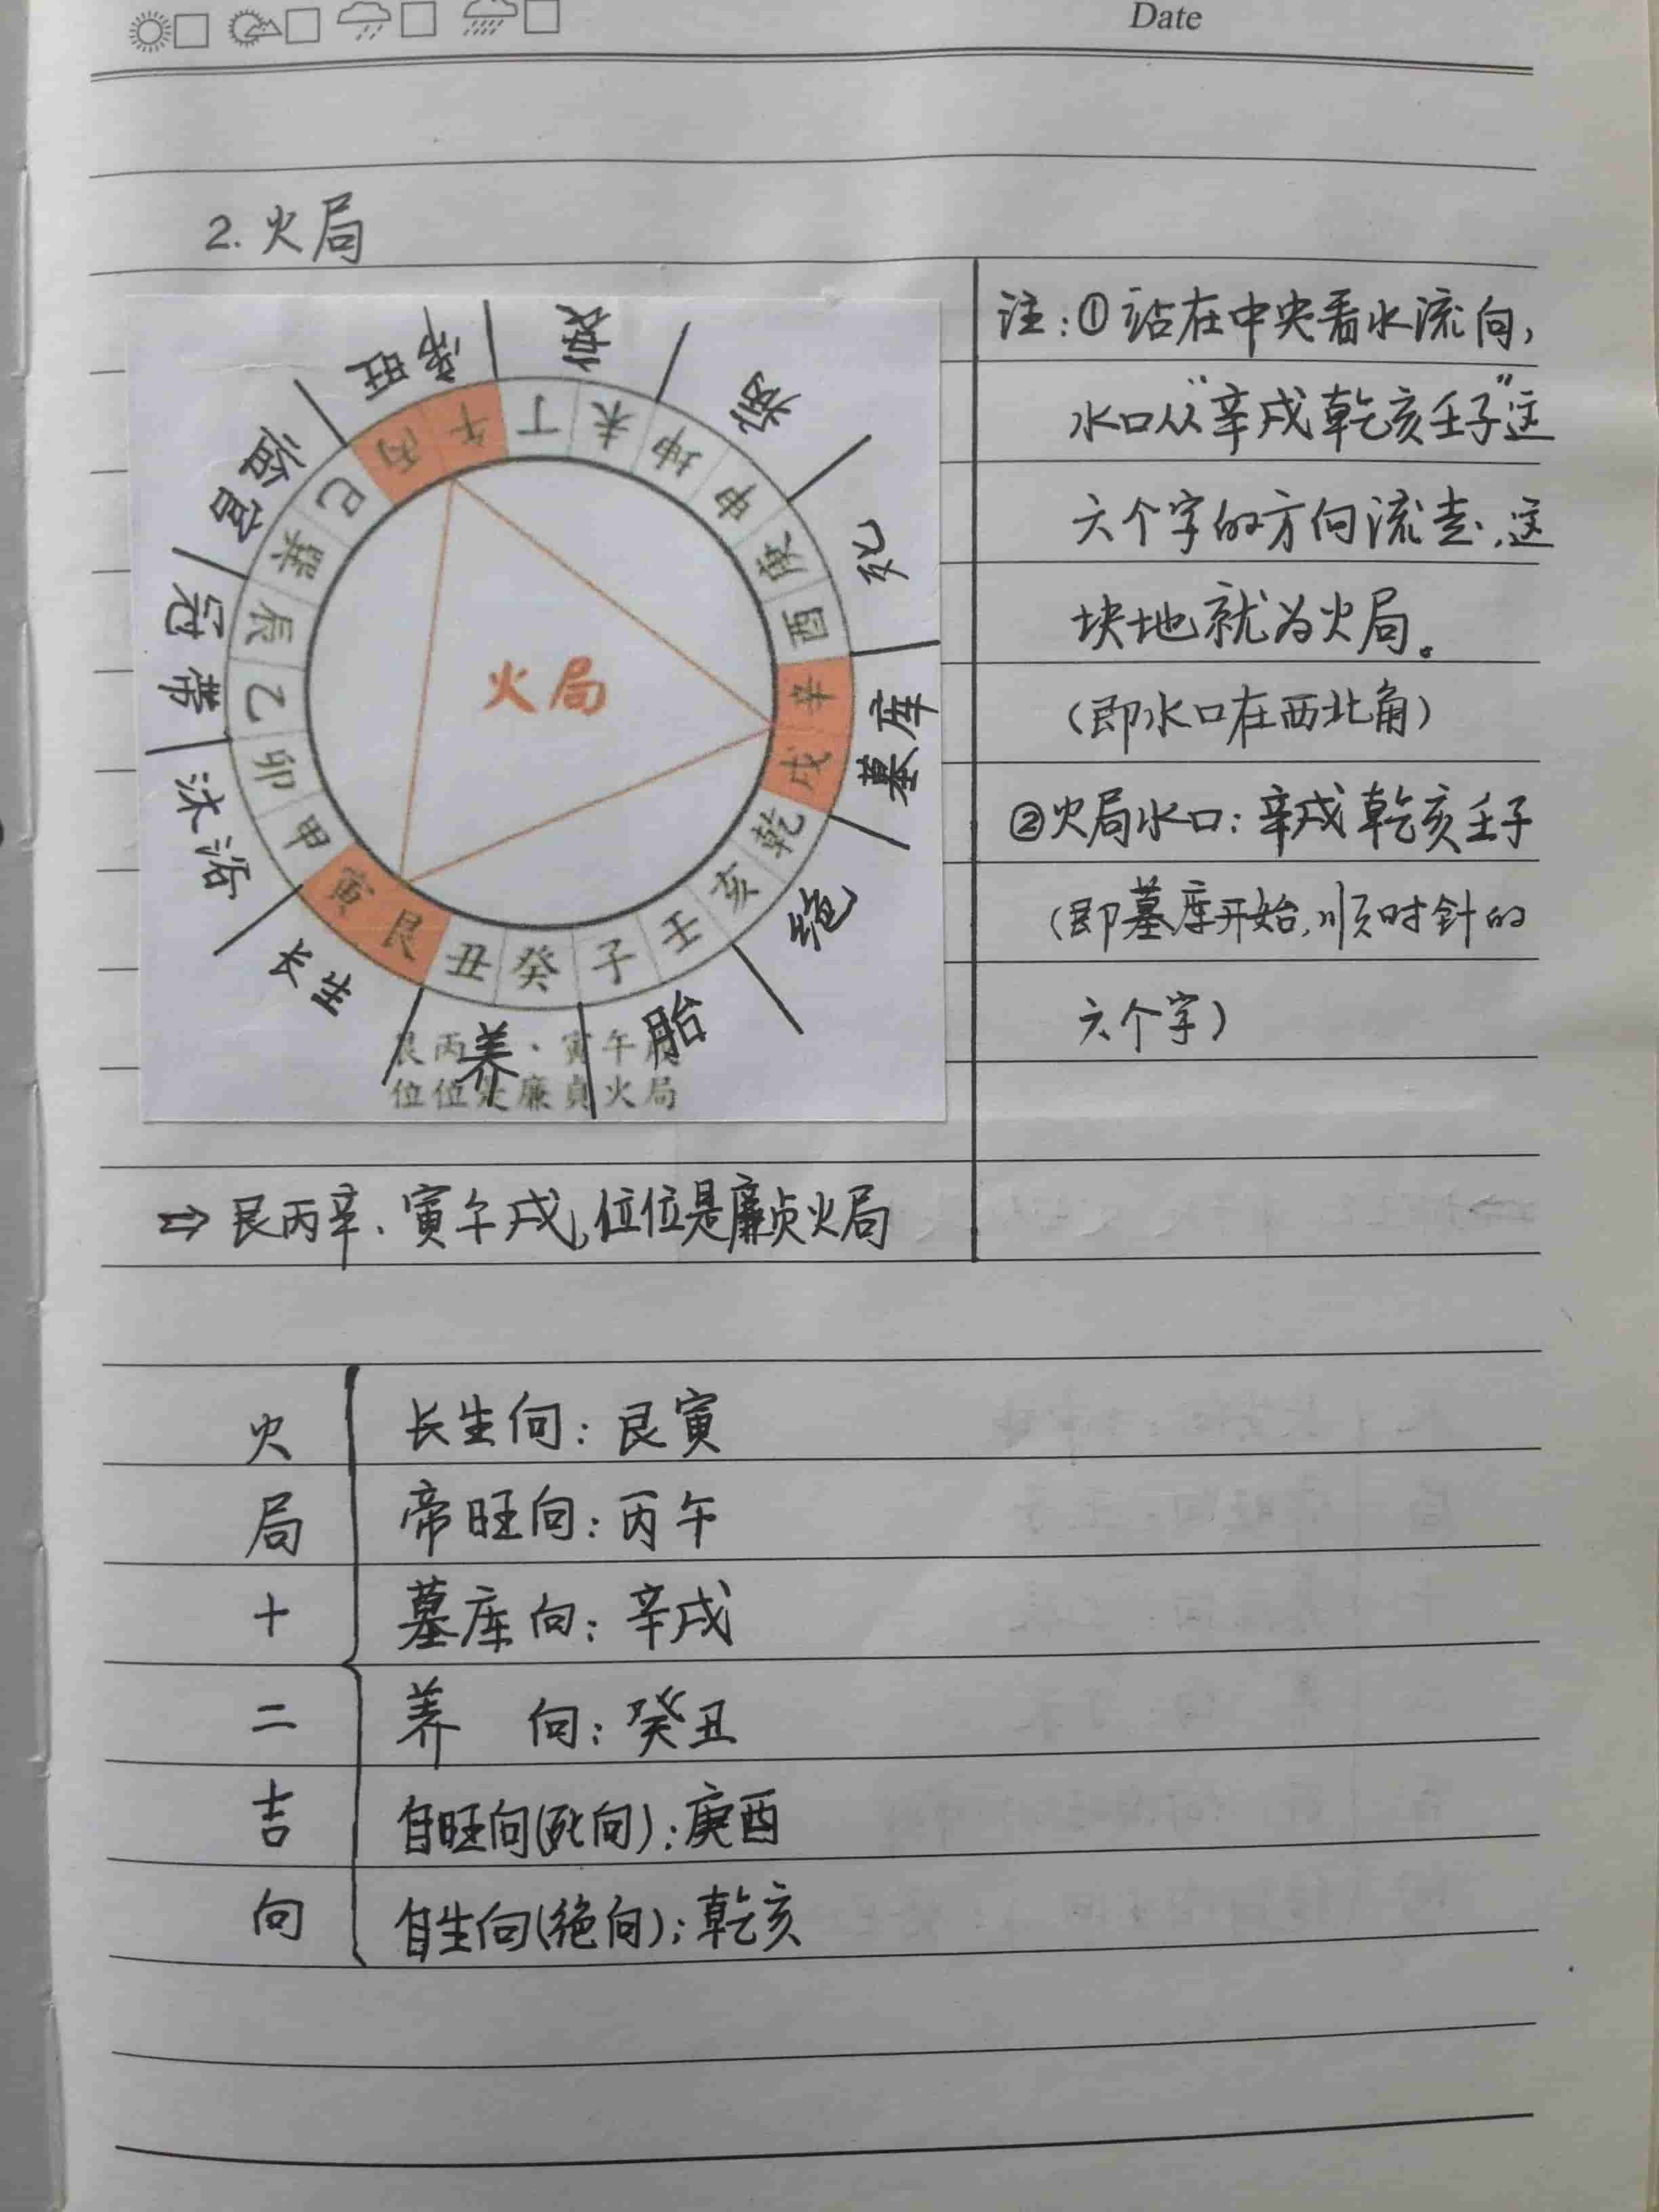 Date
2. 火局
帝旺
衰
病
死
墓库
绝
胎
养
长生
沐浴
冠带
临官
丙午丁未坤申庚酉辛戌乾亥壬子癸丑艮寅甲卯乙辰巽巳
火局
艮丙 · 寅午
位位 廉貞火局
注:①站在中央看水流向,
水口从“辛戌乾亥壬子”这
六个字的方向流走,这
块地就为火局。
(即水口在西北角)
②火局水口:辛戌乾亥壬子
(即墓库开始,顺时针的
六个字)
⇨艮丙辛、寅午戌,位位是廉贞火局
火局十二吉向
长生向:艮寅
帝旺向:丙午
墓库向:辛戌
养 向:癸丑
自旺向(死向):庚酉
自生向(绝向):乾亥